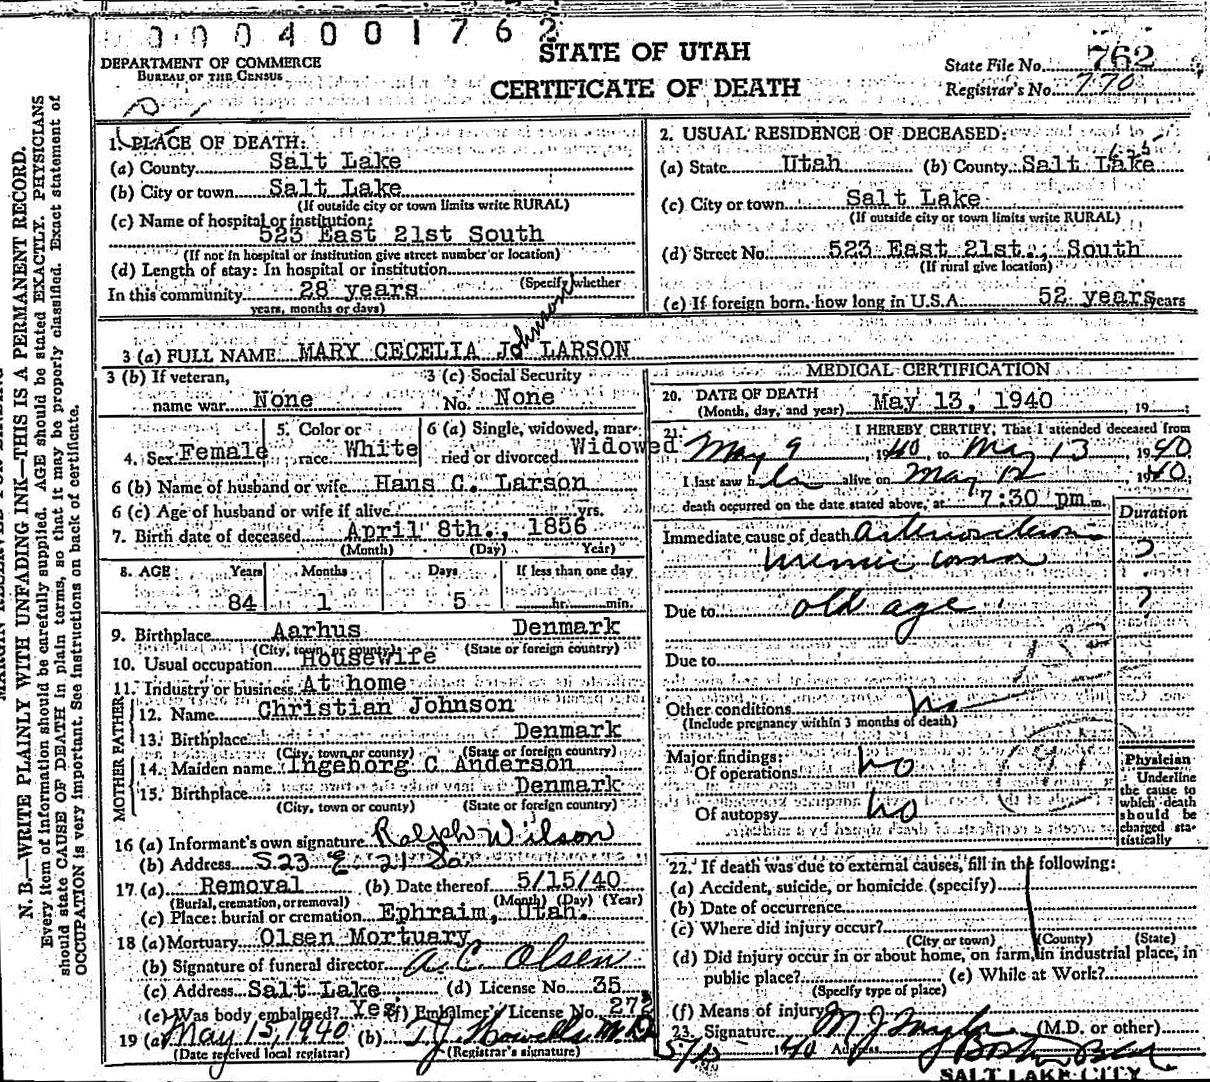 0004001762
DEPARTMENT OF COMMERCE
BUREAU OF THE CENSUS
STATE OF UTAH
CERTIFICATE OF DEATH
State File No. 762
Registrar's No. 770
N. B.—WRITE PLAINLY WITH UNFADING INK—THIS IS A PERMANENT RECORD.
Every item of information should be carefully supplied. AGE should be stated EXACTLY. PHYSICIANS
should state CAUSE OF DEATH in plain terms, so that it may be properly classified. Exact statement of
OCCUPATION is very important. See instructions on back of certificate.
1. PLACE OF DEATH:
(a) County Salt Lake
(b) City or town Salt Lake
(If outside city or town limits write RURAL)
(c) Name of hospital or institution:
523 East 21st South
(If not in hospital or institution give street number or location)
(d) Length of stay: In hospital or institution
(Specify whether
In this community 28 years
years, months or days)
2. USUAL RESIDENCE OF DECEASED:
(a) State Utah (b) County Salt Lake
(c) City or town Salt Lake
(If outside city or town limits write RURAL)
(d) Street No. 523 East 21st., South
(If rural give location)
(e) If foreign born, how long in U.S.A. 52 years years
3 (a) FULL NAME: MARY CECELIA Johnson LARSON
3 (b) If veteran,
name war None
3 (c) Social Security
No. None
4. Sex Female
5. Color or
race White
6 (a) Single, widowed, mar-
ried or divorced Widowed
6 (b) Name of husband or wife Hans C. Larson
6 (c) Age of husband or wife if alive yrs.
7. Birth date of deceased April 8th., 1856
(Month) (Day) Year)
8. AGE: Years Months Days If less than one day
84 1 5 hr. min.
9. Birthplace Aarhus Denmark
(City, town or county) (State or foreign country)
10. Usual occupation Housewife
11. Industry or business At home
FATHER
12. Name Christian Johnson
13. Birthplace Denmark
(City, town or county) (State or foreign country)
MOTHER
14. Maiden name Ingeborg C Anderson
15. Birthplace Denmark
(City, town or county) (State or foreign country)
16 (a) Informant's own signature Ralph Wilson
(b) Address 523 E 21 So
17 (a) Removal (b) Date thereof 5/15/40
(Burial, cremation, or removal) (Month) (Day) (Year)
(c) Place: burial or cremation Ephraim, Utah.
18 (a) Mortuary Olsen Mortuary
(b) Signature of funeral director A. C. Olsen
(c) Address Salt Lake (d) License No. 35
(e) Was body embalmed? Yes (f) Embalmer's License No. 272
19 (a) May 15, 1940 (b) T. J. Howells M.D.
(Date received local registrar) (Registrar's signature)
MEDICAL CERTIFICATION
20. DATE OF DEATH
(Month, day, and year) May 13, 1940 19 ;
21. I HEREBY CERTIFY, That I attended deceased from
May 9, 1940, to May 13 1940
I last saw her alive on May 12 1940;
death occurred on the date stated above, at 7:30 pm m.
Duration
Immediate cause of death Arteriosclerosis ?
uremic coma
Due to old age ?
Due to
Other conditions no
(Include pregnancy within 3 months of death)
Major findings:
Of operations no
Of autopsy no
Physician
Underline
the cause to
which death
should be
charged sta-
tistically
22. If death was due to external causes, fill in the following:
(a) Accident, suicide, or homicide (specify)
(b) Date of occurrence
(c) Where did injury occur?
(City or town) (County) (State)
(d) Did injury occur in or about home, on farm, in industrial place, in
public place? (e) While at Work?
(Specify type of place)
(f) Means of injury
23. Signature M J Taylor (M.D. or other)
5/13 1940 Address Boston Bldg
SALT LAKE CITY